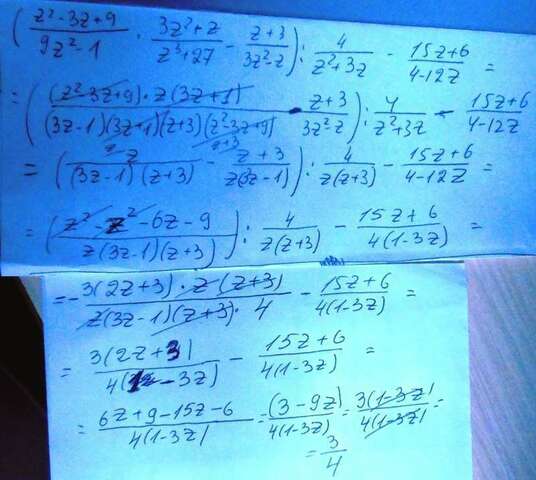 (z²-3z+9/9z²-1 · 3z²+z/z³+27 - z+3/3z²-z) : 4/z²+3z - 15z+6/4-12z =
= ((z²-3z+9)·z(3z+1)/(3z-1)(3z+1)(z+3)(z²-3z+9) - z+3/3z²-z) : 4/z²+3z - 15z+6/4-12z
= (z/(3z-1)(z+3) - z+3/z(3z-1)) : 4/z(z+3) - 15z+6/4-12z =
= (z²-z²-6z-9/z(3z-1)(z+3)) : 4/z(z+3) - 15z+6/4(1-3z) =
= -3(2z+3)·z(z+3)/z(3z-1)(z+3)·4 - 15z+6/4(1-3z) =
= 3(2z+3)/4(1-3z) - 15z+6/4(1-3z) =
= 6z+9-15z-6/4(1-3z) = (3-9z)/4(1-3z) = 3(1-3z)/4(1-3z) =
= 3/4